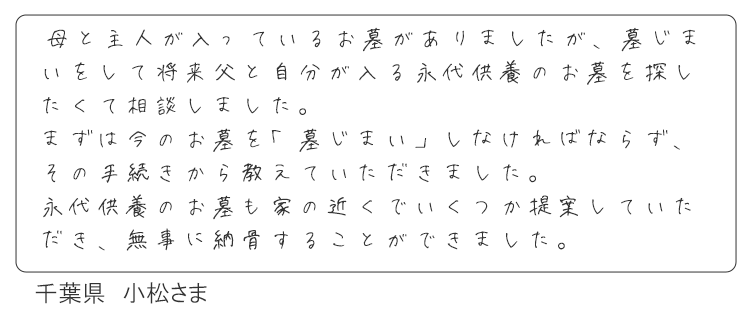 母と主人が入っているお墓がありましたが、墓じま
いをして将来父と自分が入る永代供養のお墓を探し
たくて相談しました。
まずは今のお墓を「墓じまい」しなければならず、
その手続きから教えていただきました。
永代供養のお墓も家の近くでいくつか提案していた
だき、無事に納骨することができました。
千葉県　小松さま